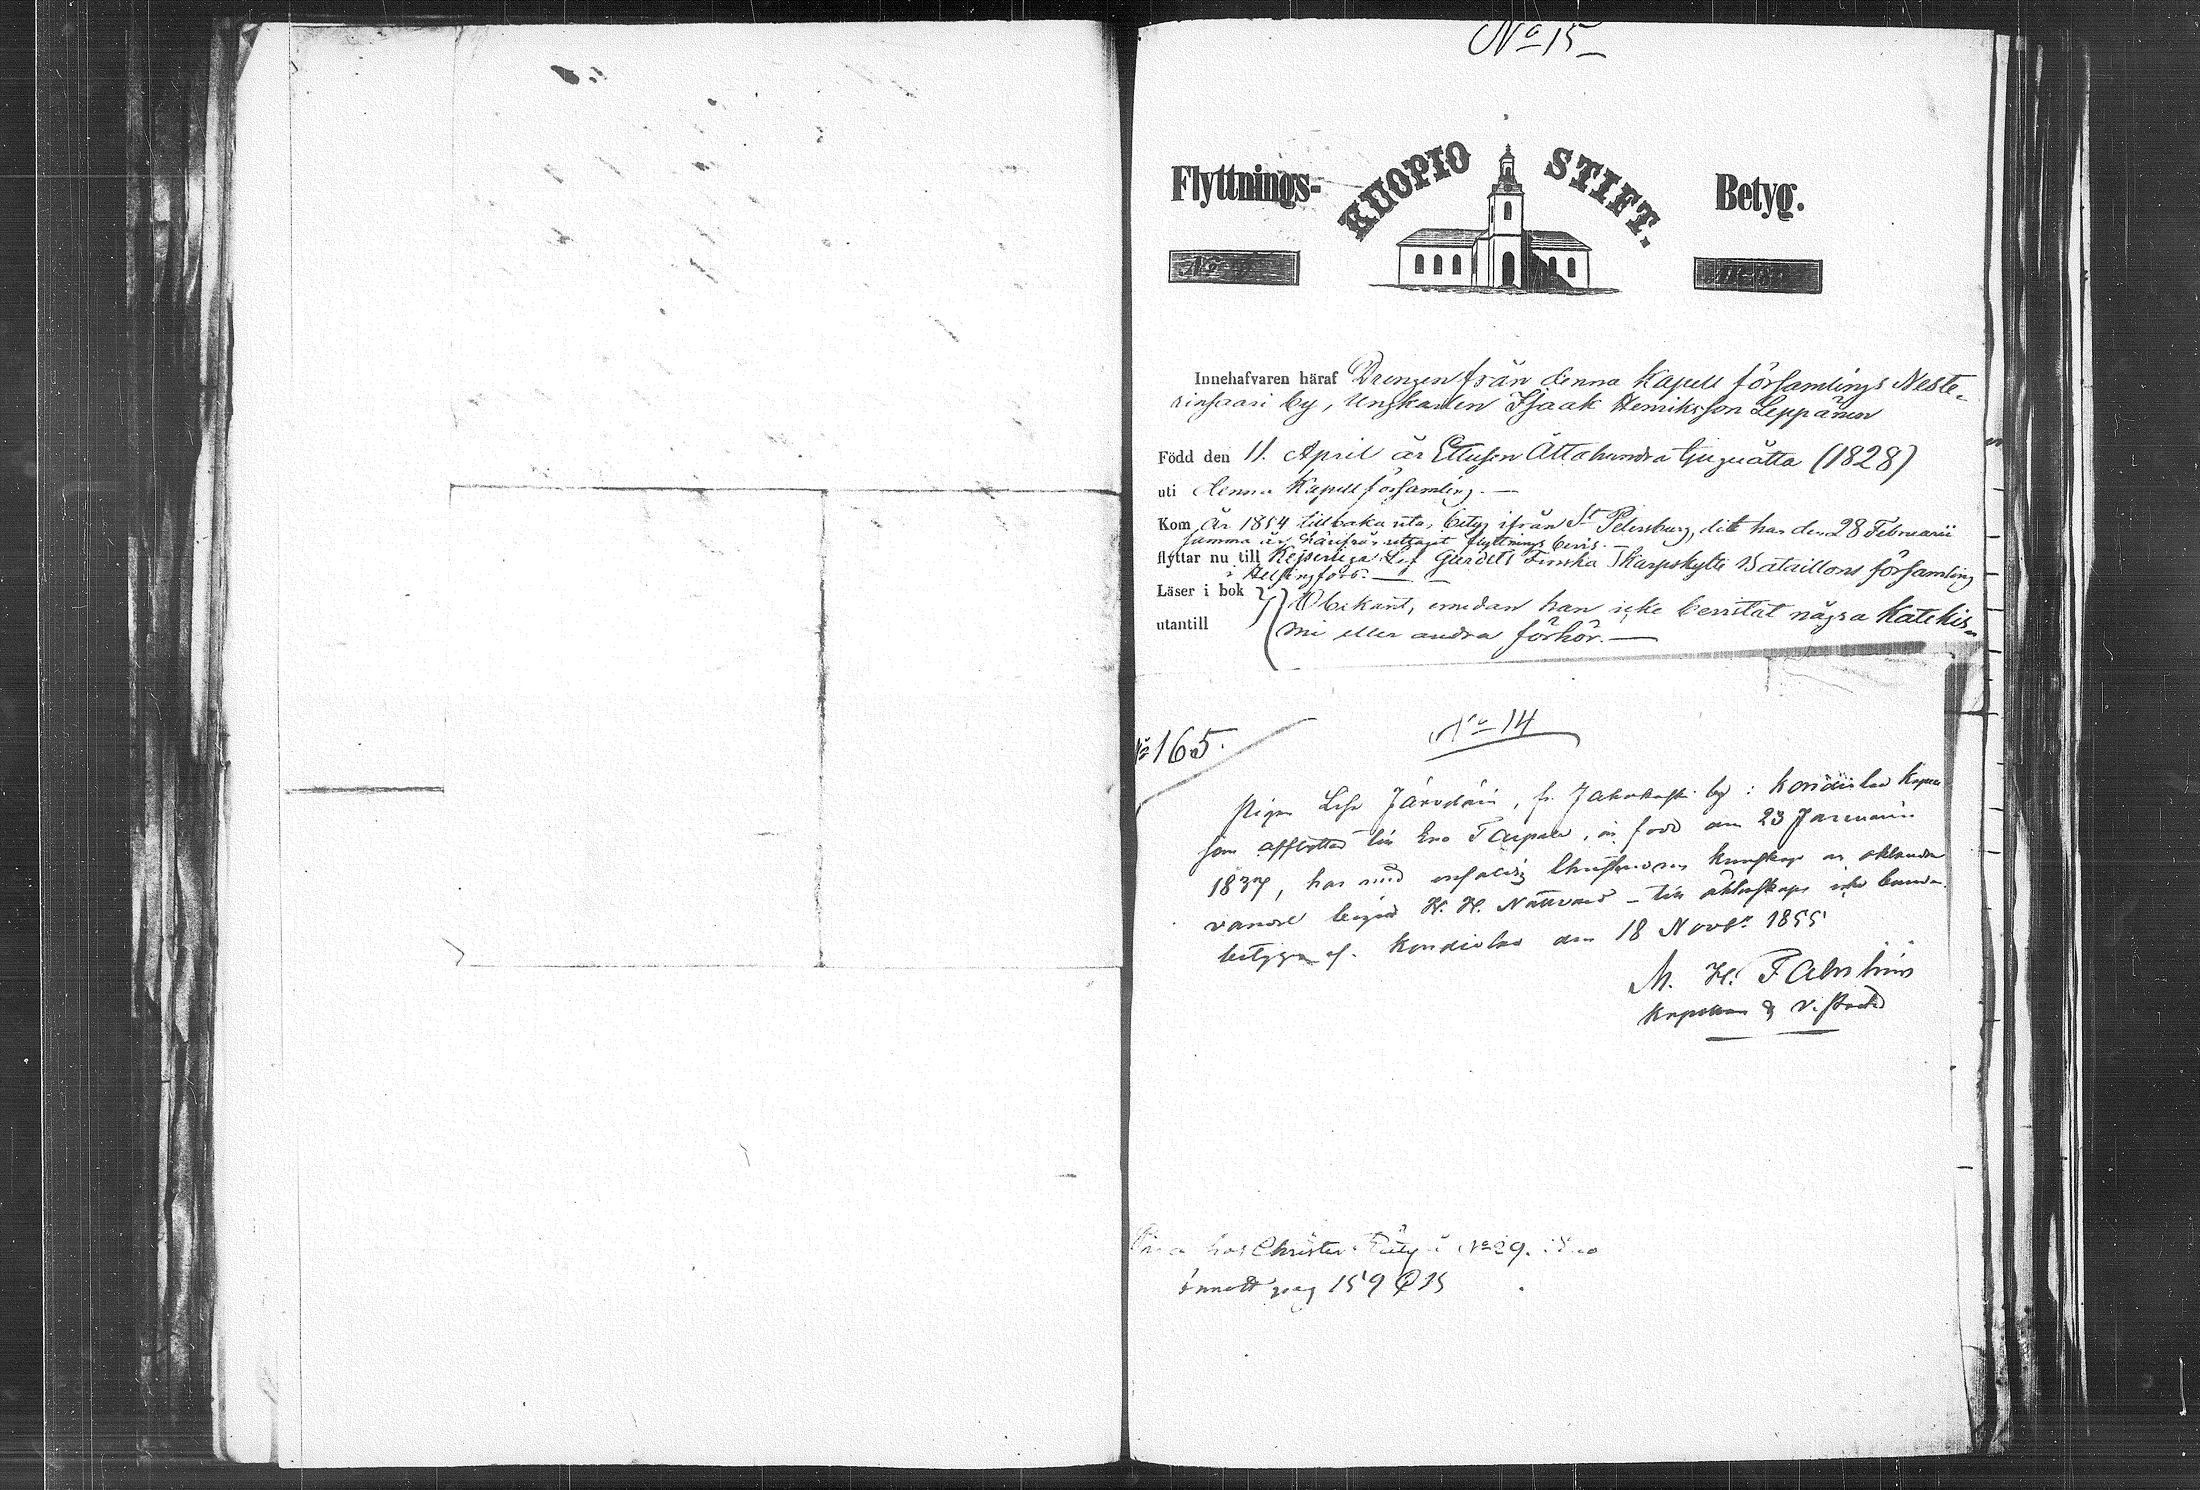 No 15
Flyttnings- KUOPIO STIFT. Betyg.
Innehafvaren häraf Drengen från denna Kapell församlings Neste-
rinsaari by, Ungkarlen Isaak Henriksson Leppänen
Född den 11. April år Ettusen Åttahundra tjuguåtta (1828)
uti denna Kapell församling. —
Kom År 1854 tillbaka utan betyg ifrån St Petersburg, dit han den 28 Februarii
samma år härifrån uttaget flyttnings bevis. —
flyttar nu till Kejserliga Lif Gardets Finska Skarpskytte Bataillons församling
i Helsingfors. —
Läser i bok
utantill
Obekant, emedan han icke bevistat några Katekis-
mi eller andra förhör. —
No 165.
No 14
Pigan Lisa by i Kondiolax Kapell
som afflyttad till Eno, är född den 23 Januarii
1837, har med christendoms kunskap
vandel begått H. H. Nattvard - till äktenskaps icke
betygas af. Kondiolax den 18 Novbr 1855
M. H.
Kapellan & V. Pastor
hos Christer No 29.
pag 159